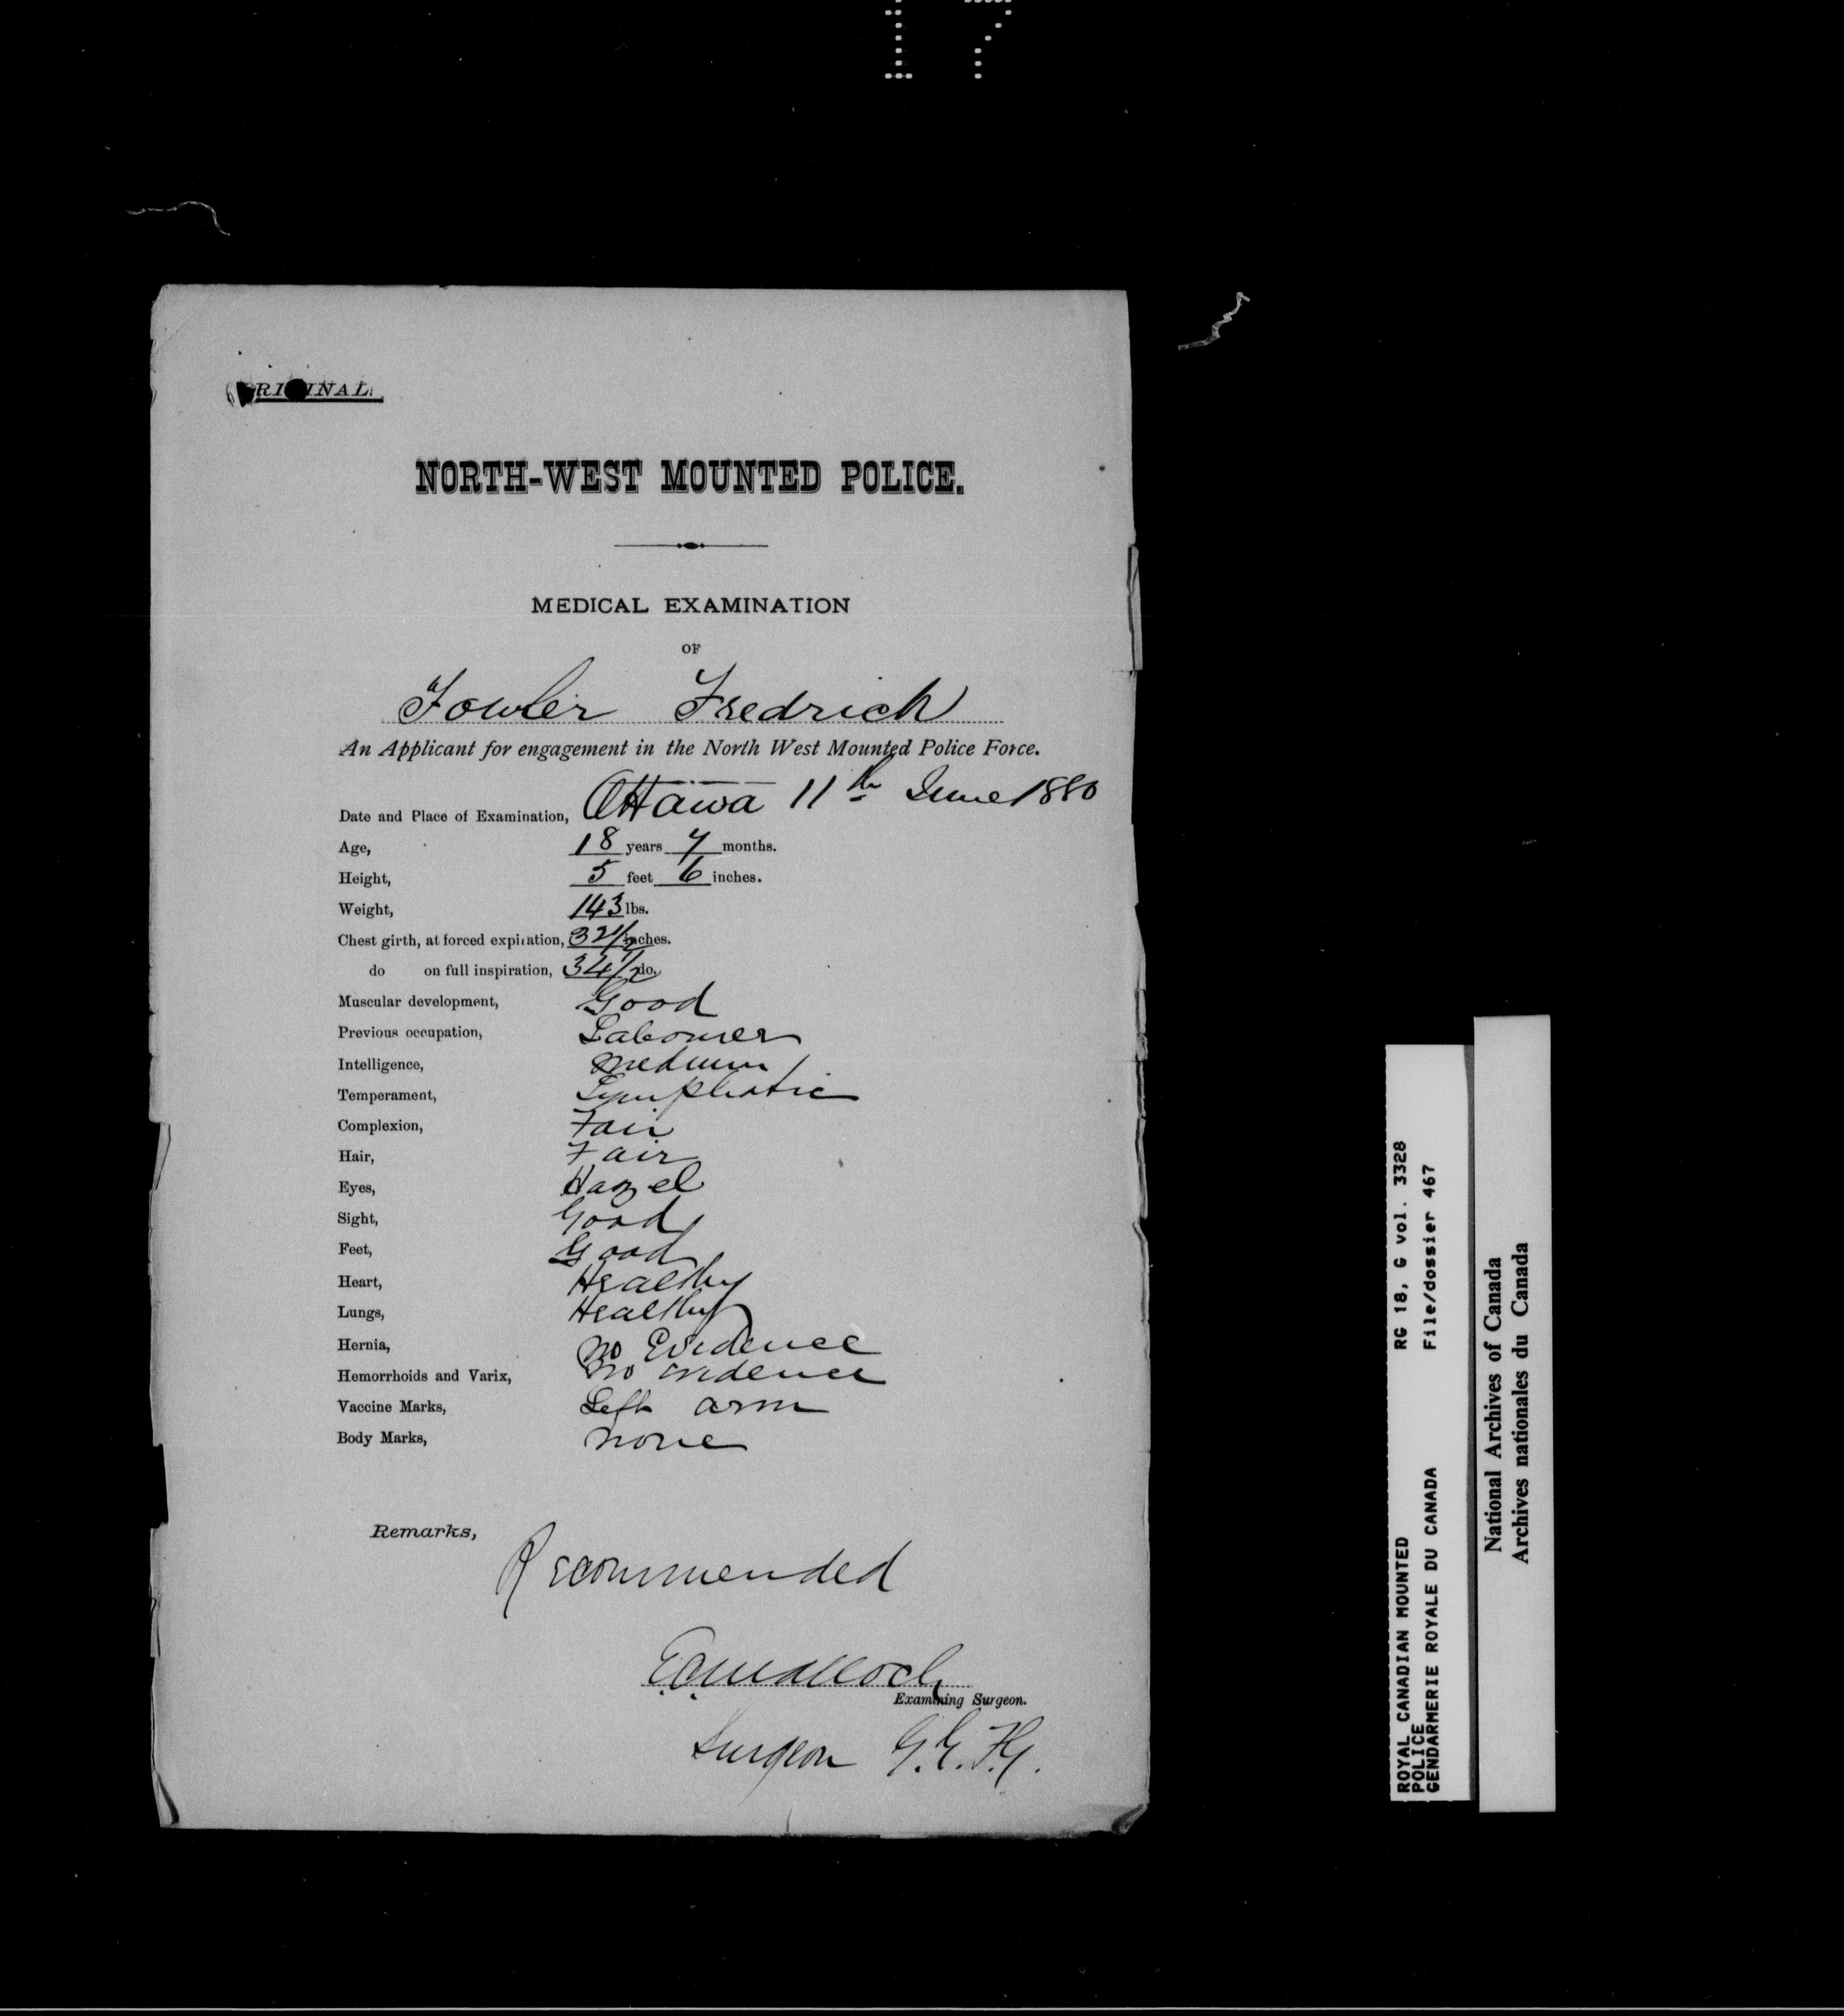 17
ORIGINAL.
NORTH-WEST MOUNTED POLICE.
MEDICAL EXAMINATION
OF
Fowler Fredrick
An Applicant for engagement in the North West Mounted Police Force.
Date and Place of Examination, Ottawa 11th June 1880
Age, 18 years 7 months.
Height, 5 feet 6 inches.
Weight, 143 lbs.
Chest girth, at forced expiration, 32 1/2 inches.
do on full inspiration, 34 1/2 do.
Muscular development, Good
Previous occupation, Labourer
Intelligence, medium
Temperament, Lymphatic
Complexion, Fair
Hair, Fair
Eyes, Hazel
Sight, Good
Feet, Good
Heart, Healthy
Lungs, Healthy
Hernia, no Evidence
Hemorrhoids and Varix, no evidence
Vaccine Marks, Left arm
Body Marks, none
Remarks,
Recommended
E.C. Malloch
Examining Surgeon.
Surgeon G.G.F.G.
ROYAL CANADIAN MOUNTED RG 18, G vol. 3328
POLICE
GENDARMERIE ROYALE DU CANADA File/dossier 467
National Archives of Canada
Archives nationales du Canada